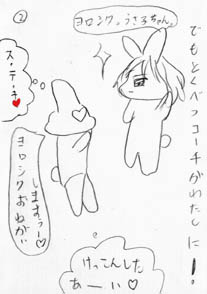 ②
でもとくべつコーチがわたしにー!
ヨロシク。うさ子ちゃん。
ス・テ・キ♥
ヨロシクおねがい
しますぅー♡
けっこんした
あーい♡